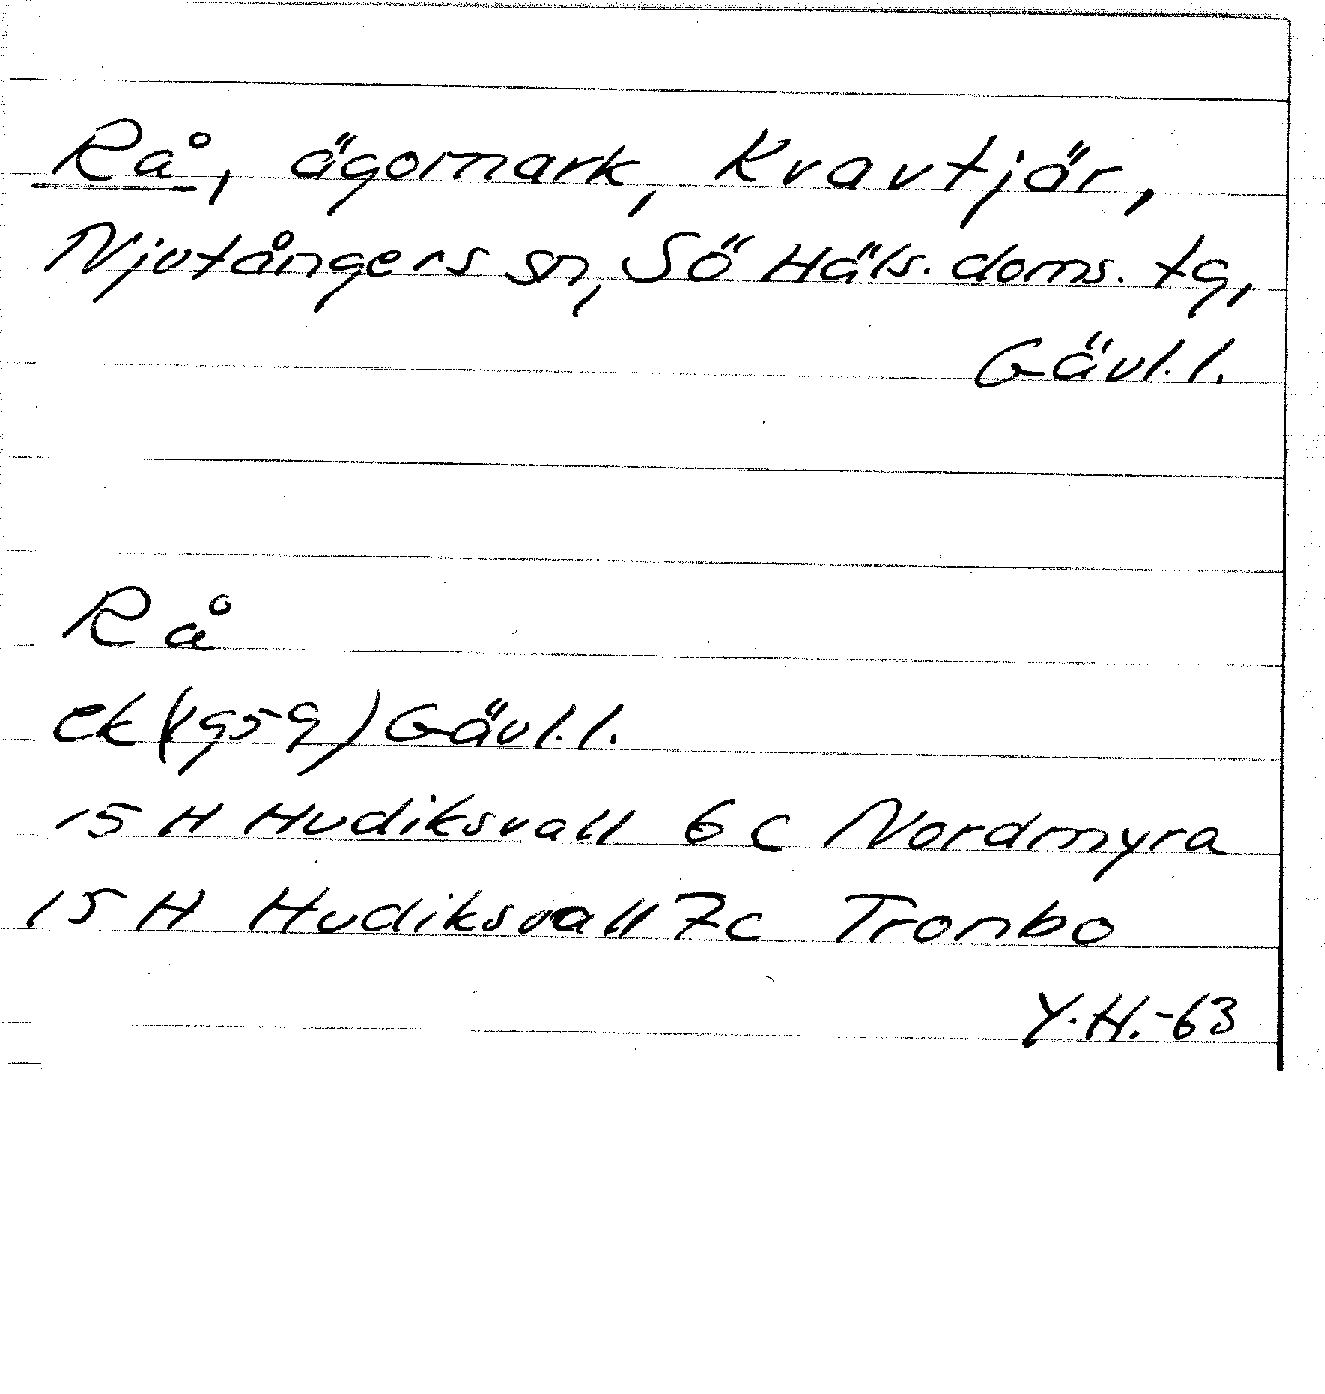 Rå, ägomark, Kvavtjär,
Njutångers sn, Sö Häls. doms. tg,
Gävl. l.
Rå
ek (1959) Gävl. l.
15 H Hudiksvall 6 c Nordmyra
15 H Hudiksvall 7c Tronbo
Y.H.-63